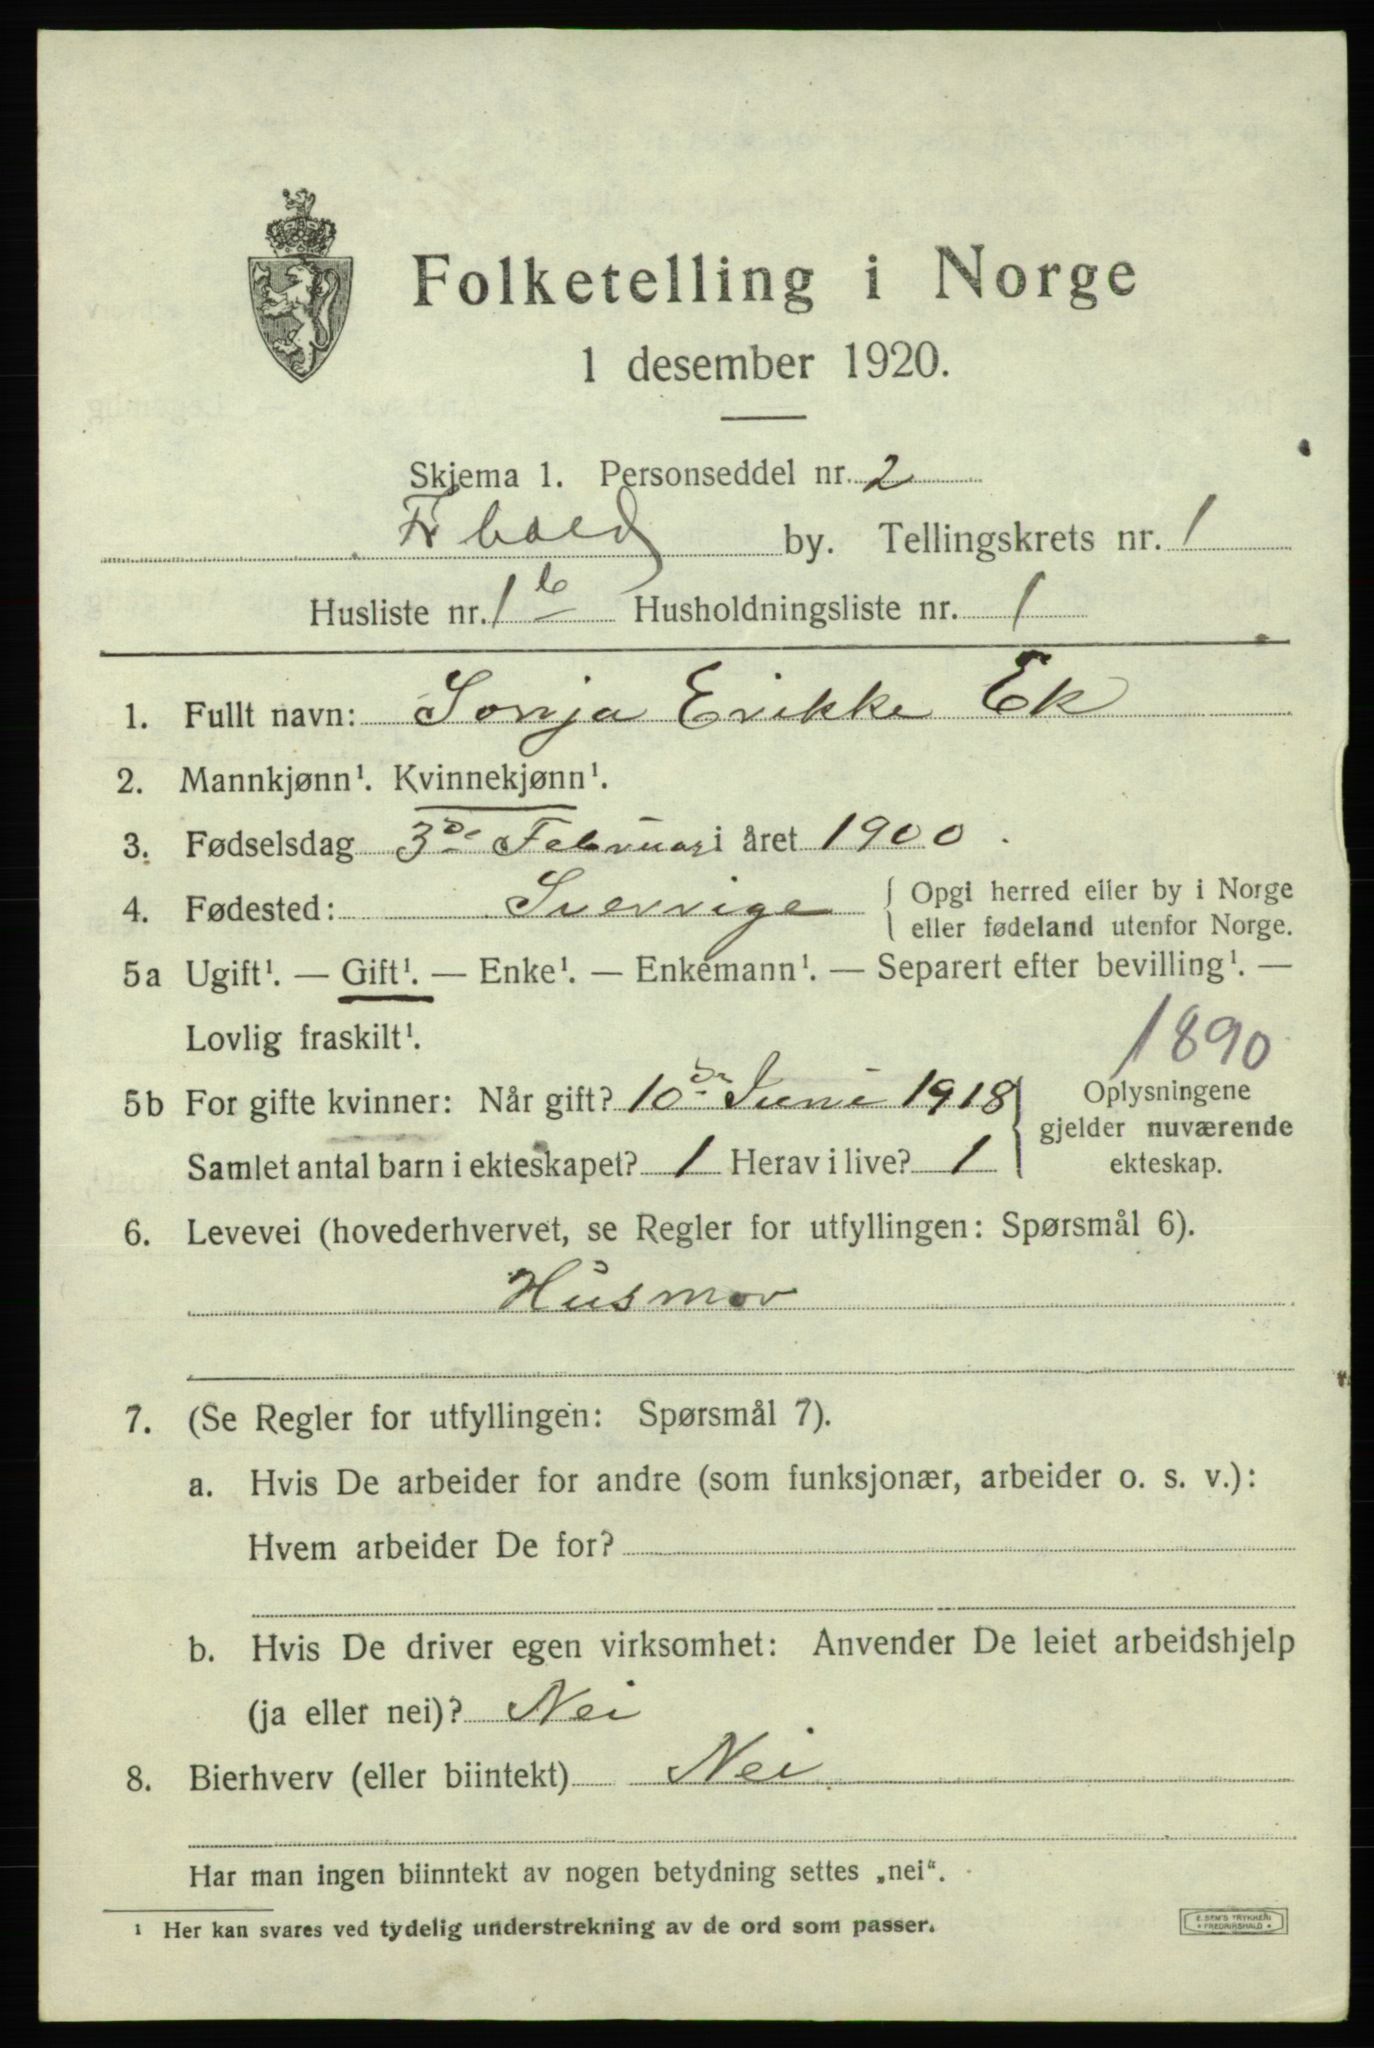 Folketelling i Norge
1 desember 1920.
Skjema 1. Personseddel nr. 2
Fr hald by. Tellingskrets nr. 1
Husliste nr. 1 b Husholdningsliste nr. 1
1. Fullt navn: Sonja Erikke Ek
2. Mannkjønn¹. Kvinnekjønn¹.
3. Fødselsdag 3de Februar i året 1900.
4. Fødested: Sverrige { Opgi herred eller by i Norge
eller fødeland utenfor Norge.
5a Ugift¹. — Gift¹. — Enke¹. — Enkemann¹. — Separert efter bevilling¹. —
Lovlig fraskilt¹.
1890
5b For gifte kvinner: Når gift? 10de Juni 1918 } Oplysningene
gjelder nuværende
Samlet antal barn i ekteskapet? 1 Herav i live? 1 ekteskap.
6. Levevei (hovederhvervet, se Regler for utfyllingen: Spørsmål 6).
Husmor
7. (Se Regler for utfyllingen: Spørsmål 7).
a. Hvis De arbeider for andre (som funksjonær, arbeider o. s. v.):
Hvem arbeider De for?
b. Hvis De driver egen virksomhet: Anvender De leiet arbeidshjelp
(ja eller nei)? Nei
8. Bierhverv (eller biintekt) Nei
Har man ingen biinntekt av nogen betydning settes „nei“.
¹ Her kan svares ved tydelig understrekning av de ord som passer.
E. SEM'S TRYKKERI
• FREDRIKSHALD •